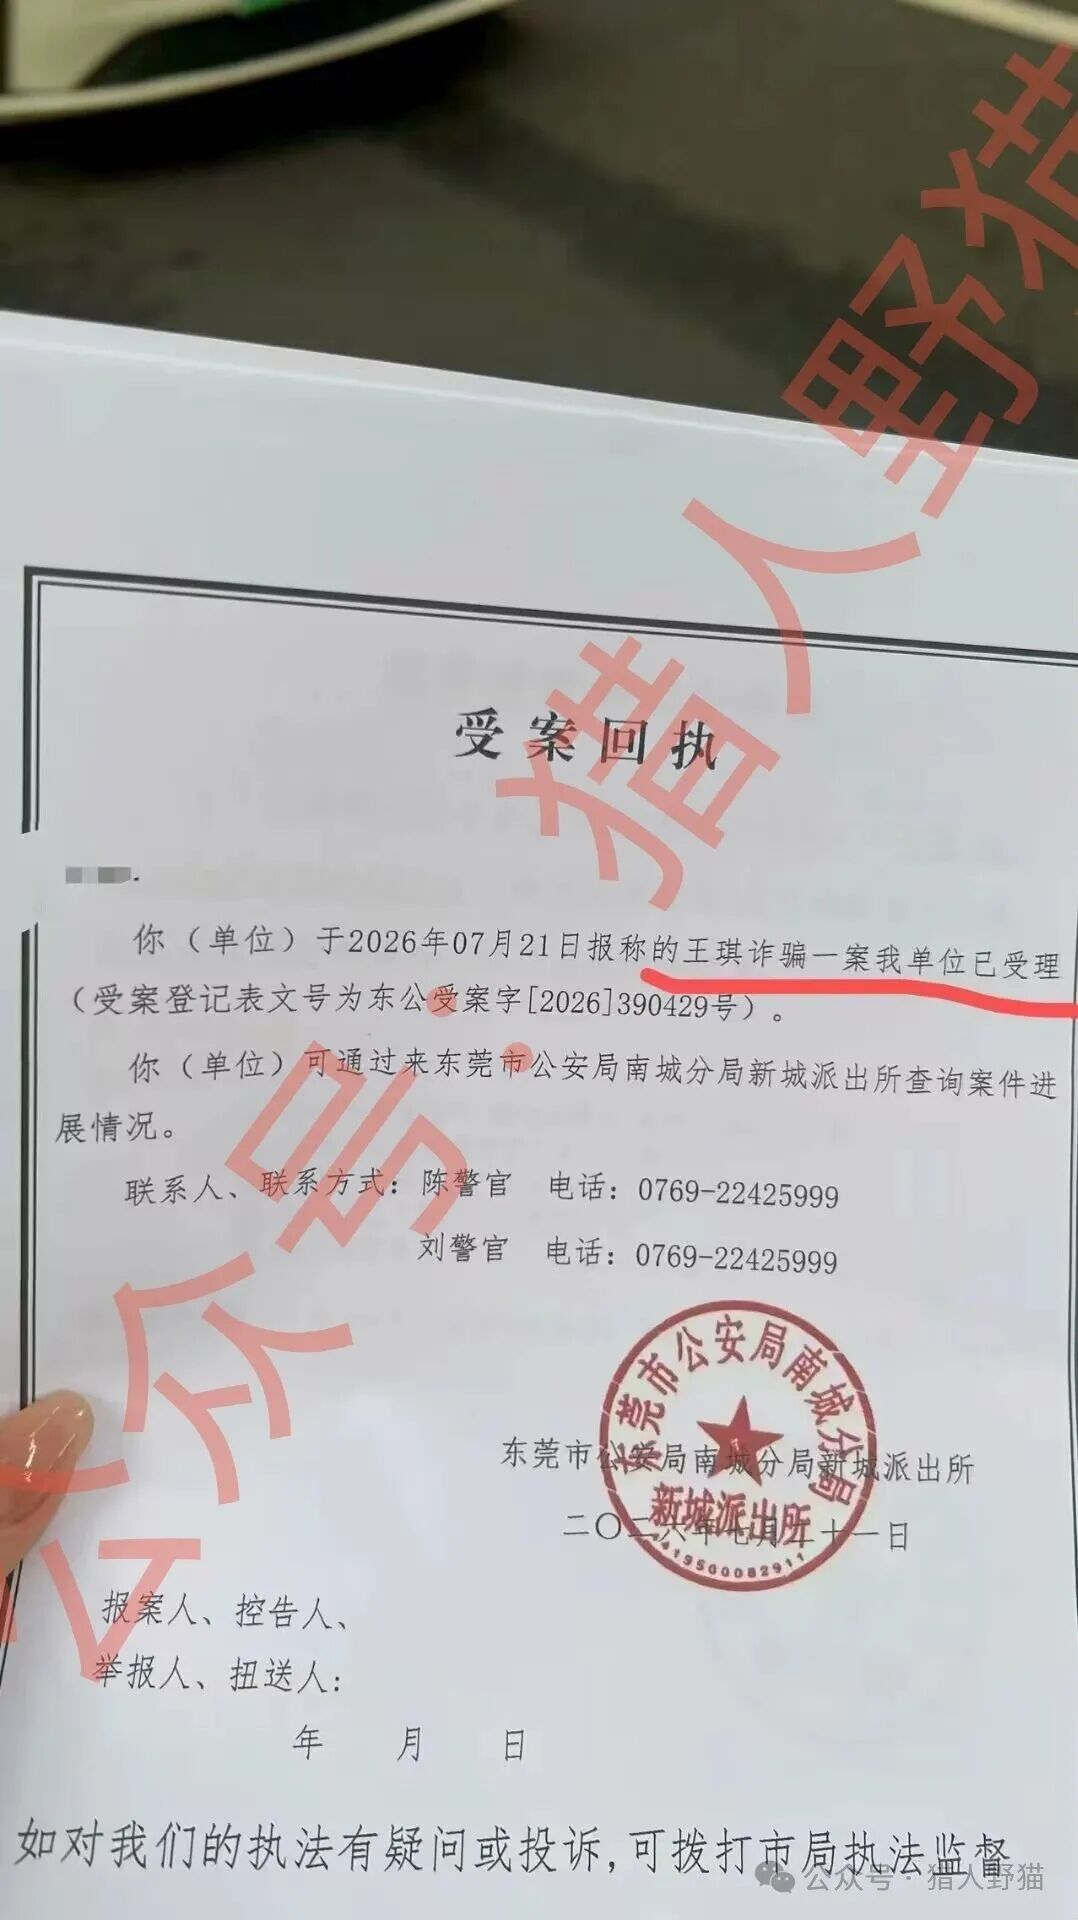 受案回执
你（单位）于2026年07月21日报称的王琪诈骗一案我单位已受理
（受案登记表文号为东公受案字[2026]390429号）。
你（单位）可通过来东莞市公安局南城分局新城派出所查询案件进
展情况。
联系人、联系方式：陈警官 电话：0769-22425999
刘警官 电话：0769-22425999
东莞市公安局南城分局新城派出所
二〇二六年七月二十一日
东莞市公安局南城分局
新城派出所
4419500082911
报案人、控告人、
举报人、扭送人：
年 月 日
如对我们的执法有疑问或投诉,可拨打市局执法监督
公众号：猎人野猫
公众号·猎人野猫